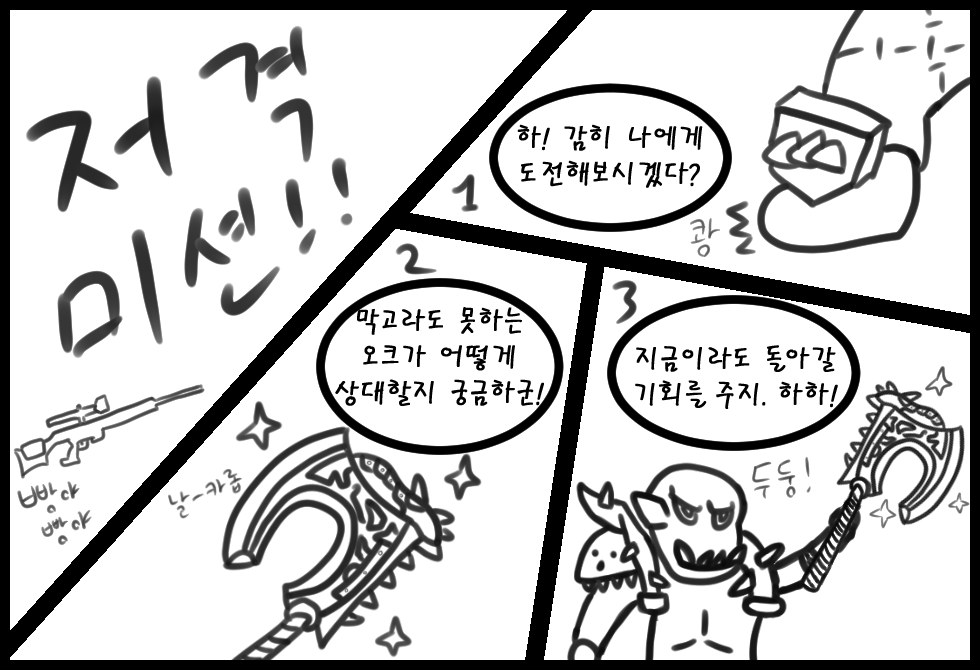 저격
미션!!
빵야
빵야
1
하! 감히 나에게
도전해보시겠다?
쾅
2
막고라도 못하는
오크가 어떻게
상대할지 궁금하군!
날-카롭
3
지금이라도 돌아갈
기회를 주지. 하하!
두둥!